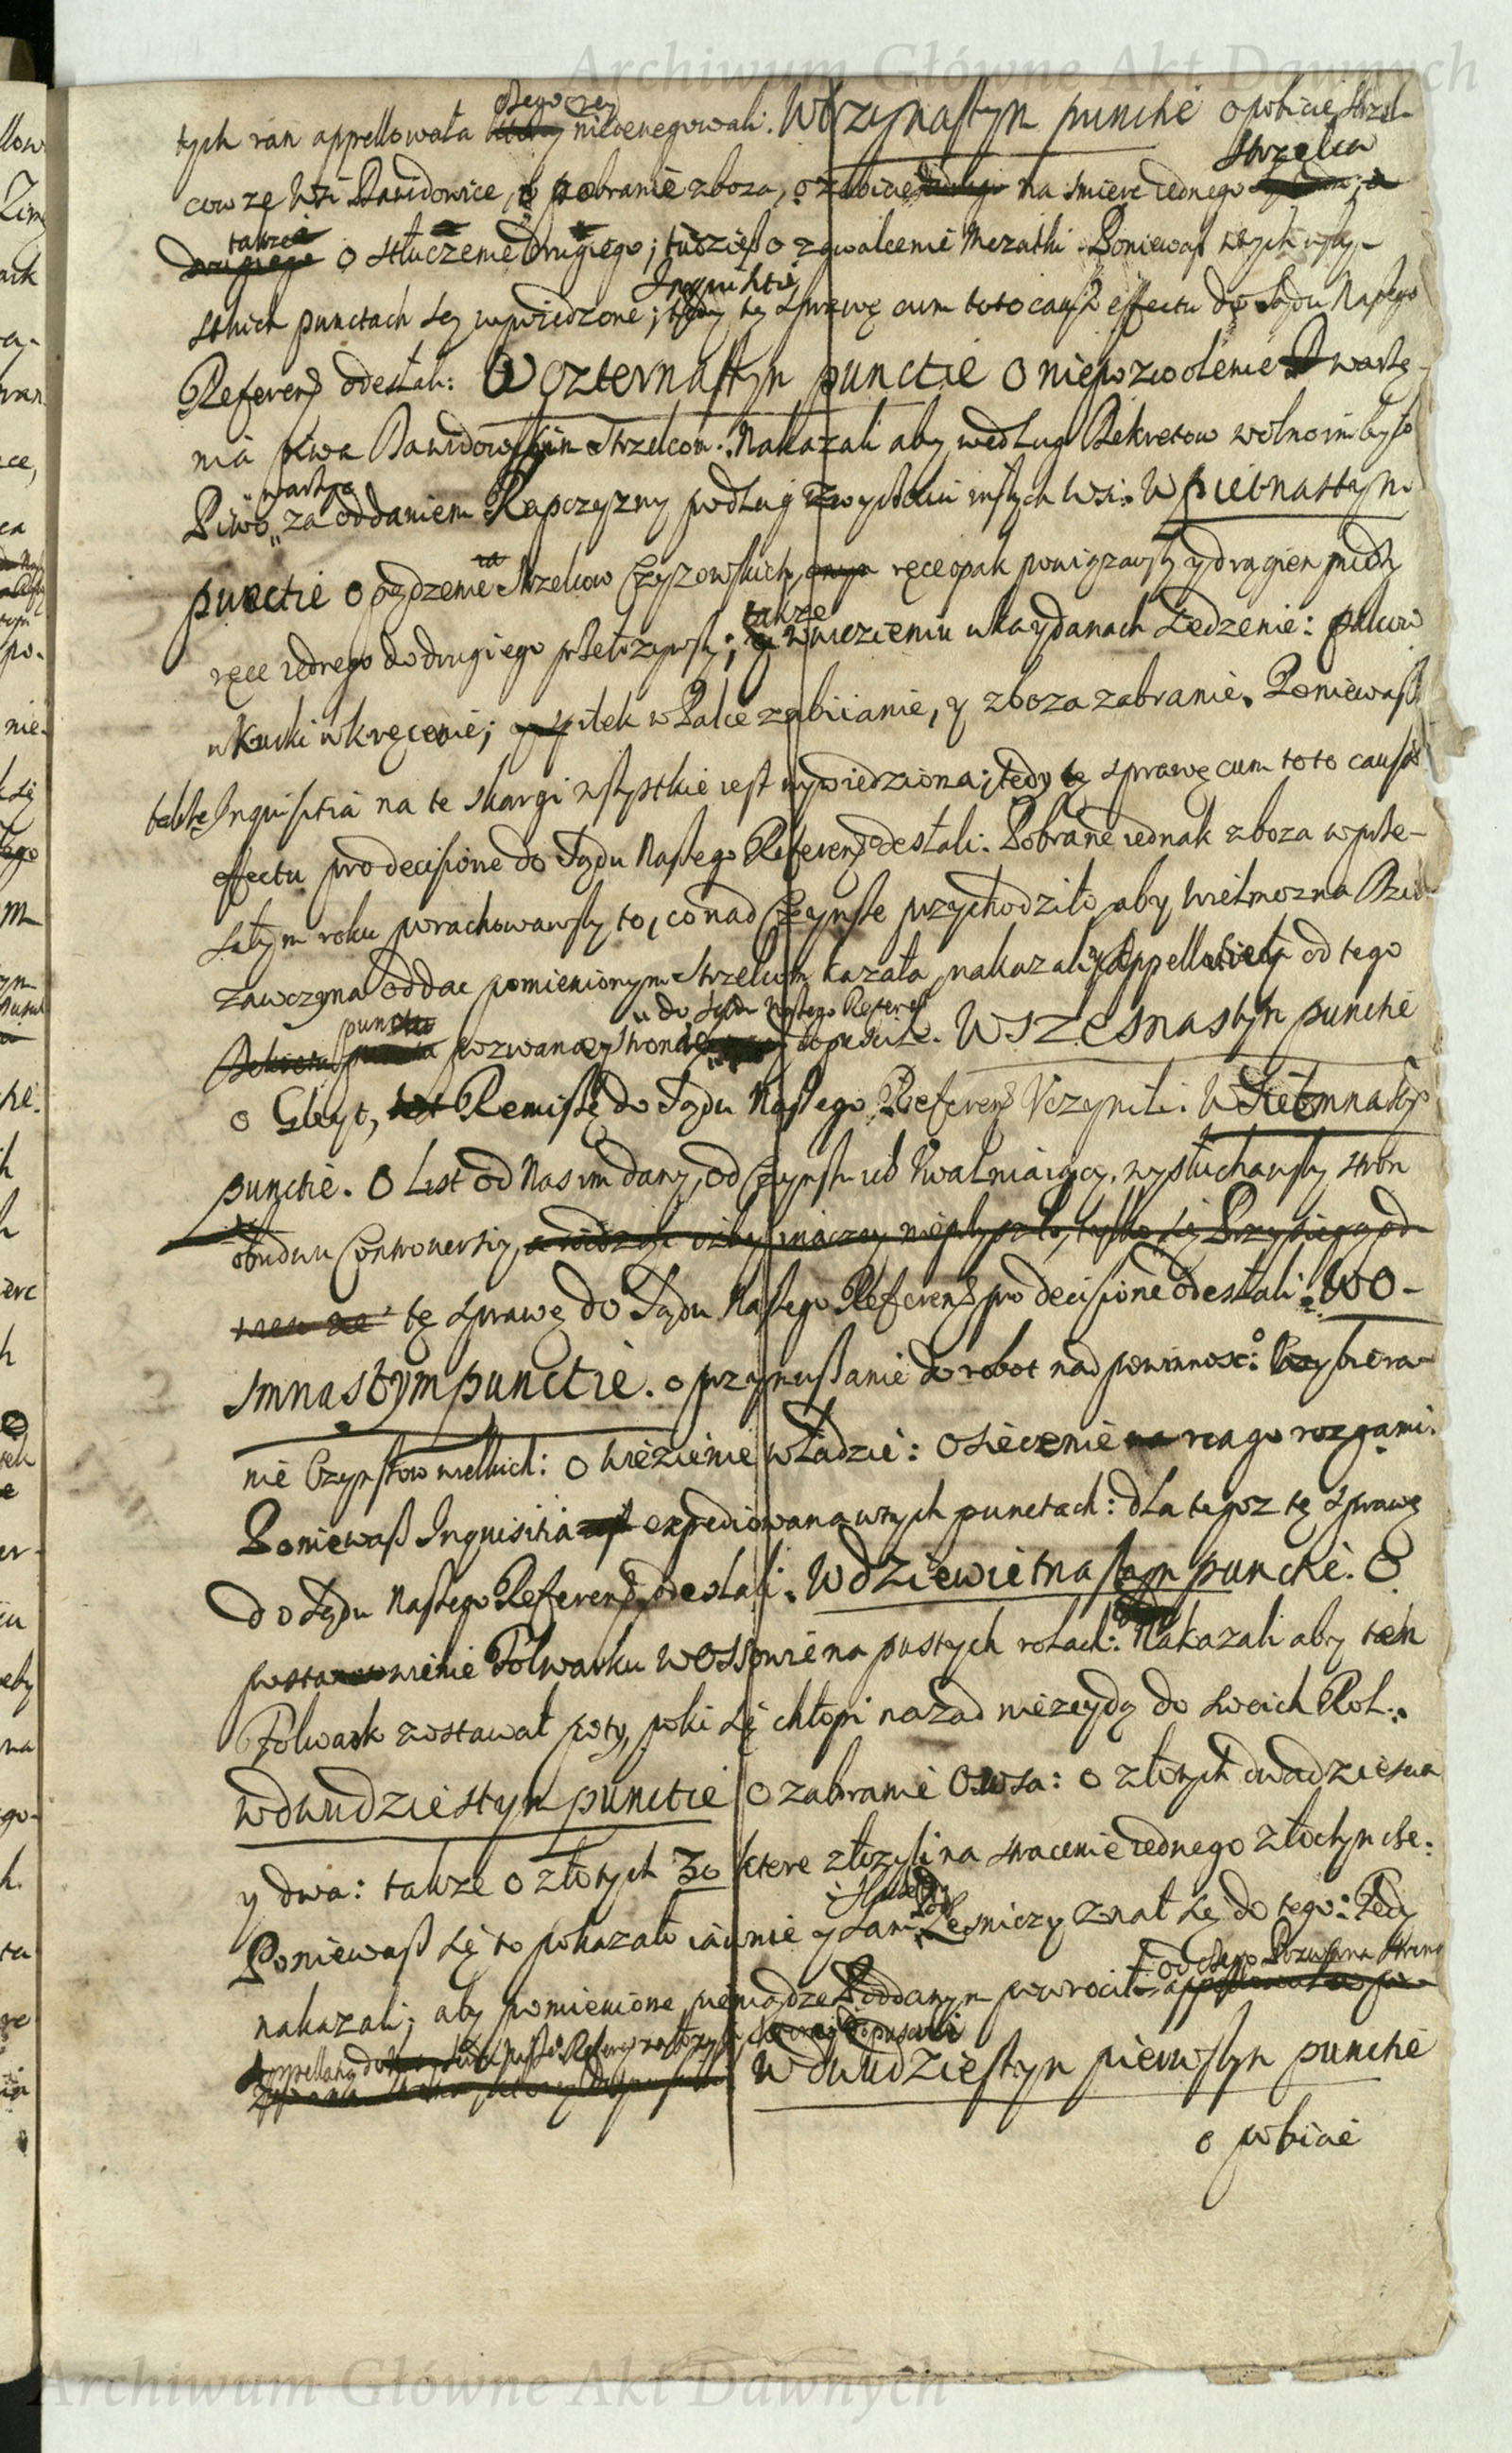 Archiwum Główne Akt Dawnych
tych ran appellowała czego oney niedenegowali. W trzynastym punctie o pobicie strzel-
cow ze Wsi Dawidowice, o pobranie zboza, o zabicie na smierc iednego strzelca
takze o stłuczenie drugiego; tudziesz o zgwałcenie Mezatki. Poniewasz w tych wszy-
stkich punctach są wywiedzone Inquisitie; tedy tę sprawę cum toto causæ effectu do Sądu Naszego
Referend odesłali: W czternastym punctie o niepozwolenie warze-
nia piwa Dawidowskim Strzelcom: Nakazali aby według Dekretow wolno im było
Piwo warzyc za oddaniem Kapczyzny podług zwyczaiu inszych Wsi. W pietnastym
punctie o pędzenie Strzelcow Czyzowskich, ręce opak powiązawszy y drągiem miedzy
ręce iednego do drugiego przełozywszy; takze w wiezieniu w kaydanach siedzenie: palcow
w kurki wkręcenie; szpilek w Palce zabiianie, y zboza zabranie. Poniewasz
także Inquisitia na te skargi wszystkie iest wywiedziona; tedy tę sprawę cum toto causæ
effectu pro decisione do Sądu Naszego Referend odesłali: Pobrane iednak zboza w prze-
szłym roku porachowawszy to, co nad Czynsze przychodziło, aby Wielmozna Dzier-
zawczyna oddac pomienionym Strzelcom kazała, nakazali, y Appellatią od tego
punctu pozwaney stronie do Sądu Naszego Referend dopuscili. W szesnastym punctie
o Gleyt, Remissę do Sądu Naszego Referend Uczynili. W siedmnastym
punctie. O List od Nas im dany, od Czynszu ich Uwalniaiący, wysłuchawszy stron
obudwu Controwersiy,
tę sprawę do Sądu Naszego Referend pro decisione odesłali. W O-
smnastym punctie. o przymuszanie do robot nad powinnosc: o wybiera-
nie Czynszow wielkich: o wiezienie w kładzie: o sieczenie nago rozgami.
Poniewasz Inquisitia expediowana w tych punctach: dla tegosz tę sprawę
do Sądu Naszego Referend odesłali. W dziewietnastym punctie. O
postanowienie Folwarku w Ossowie na pustych rolach: Nakazali aby ten
Folwark zostawał poty, poki się chłopi nazad niezeydą do swoich Rol.
W dwudziestym punctie o zabranie Owsa: o złotych dwadziescia
y dwa: takze o złotych 30 ktore złozyli na stracenie iednego złoczyncę:
Poniewasz się to pokazało iawnie y sam Lesniczy znał się do tego: Tedy
nakazali; aby pomienione pieniądze Poddanym powrocił: od czego Pozwana strona
W dwudziestym pierwszym punctie
o pobicie
Archiwum Główne Akt Dawnych